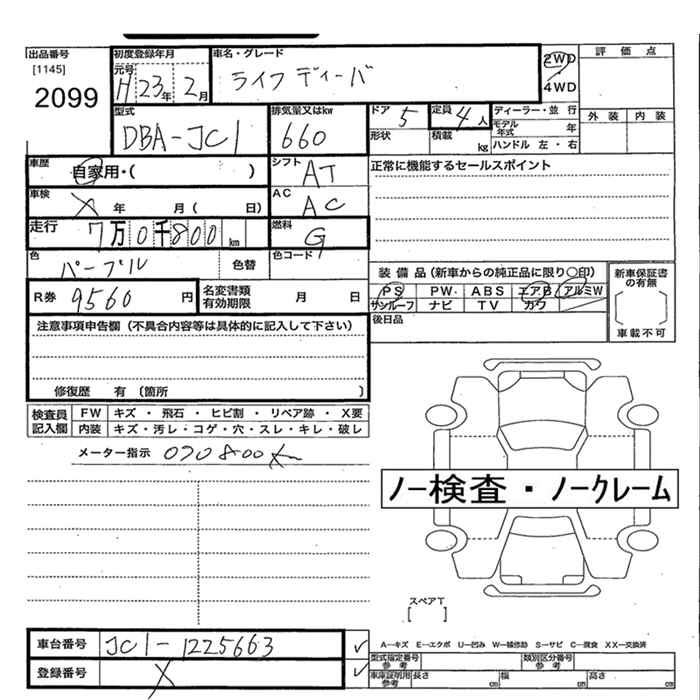 出品番号
[1145]
2099
初度登録年月
元号
H 23年 2月
車名・グレード
ライフ ディーバ
2WD
4WD
評価点
外装 内装
型式
DBA-JC1
排気量又はkw
660
ドア 5
形状
定員 4人
積載 kg
ディーラー・並行
モデル年式 年
ハンドル 左・右
車歴
自家用・( )
シフト
AT
正常に機能するセールスポイント
車検
X 年 月( 日)
AC
AC
走行
7万0千800 km
燃料
G
色
パープル
色替
色コード
装備品(新車からの純正品に限り〇印)
PS PW ABS エアB アルミW
サンルーフ ナビ TV カワ
新車保証書の有無
車載不可
R券 9560 円
名変書類有効期限 月 日
後日品
注意事項申告欄(不具合内容等は具体的に記入して下さい)
修復歴 有〔箇所 〕
検査員記入欄
FW キズ・飛石・ヒビ割・リペア跡・X要
内装 キズ・汚レ・コゲ・穴・スレ・キレ・破レ
メーター指示 070800km
ノー検査・ノークレーム
スペアT
[ ]
車台番号 JC1-1225663
登録番号 X
A-キズ E-エクボ U-凹み W-補修跡 S-サビ C-腐食 XX-交換済
型式指定番号 参考
類別区分番号 参考
車庫証明用 参考
長さ cm 幅 cm 高さ cm